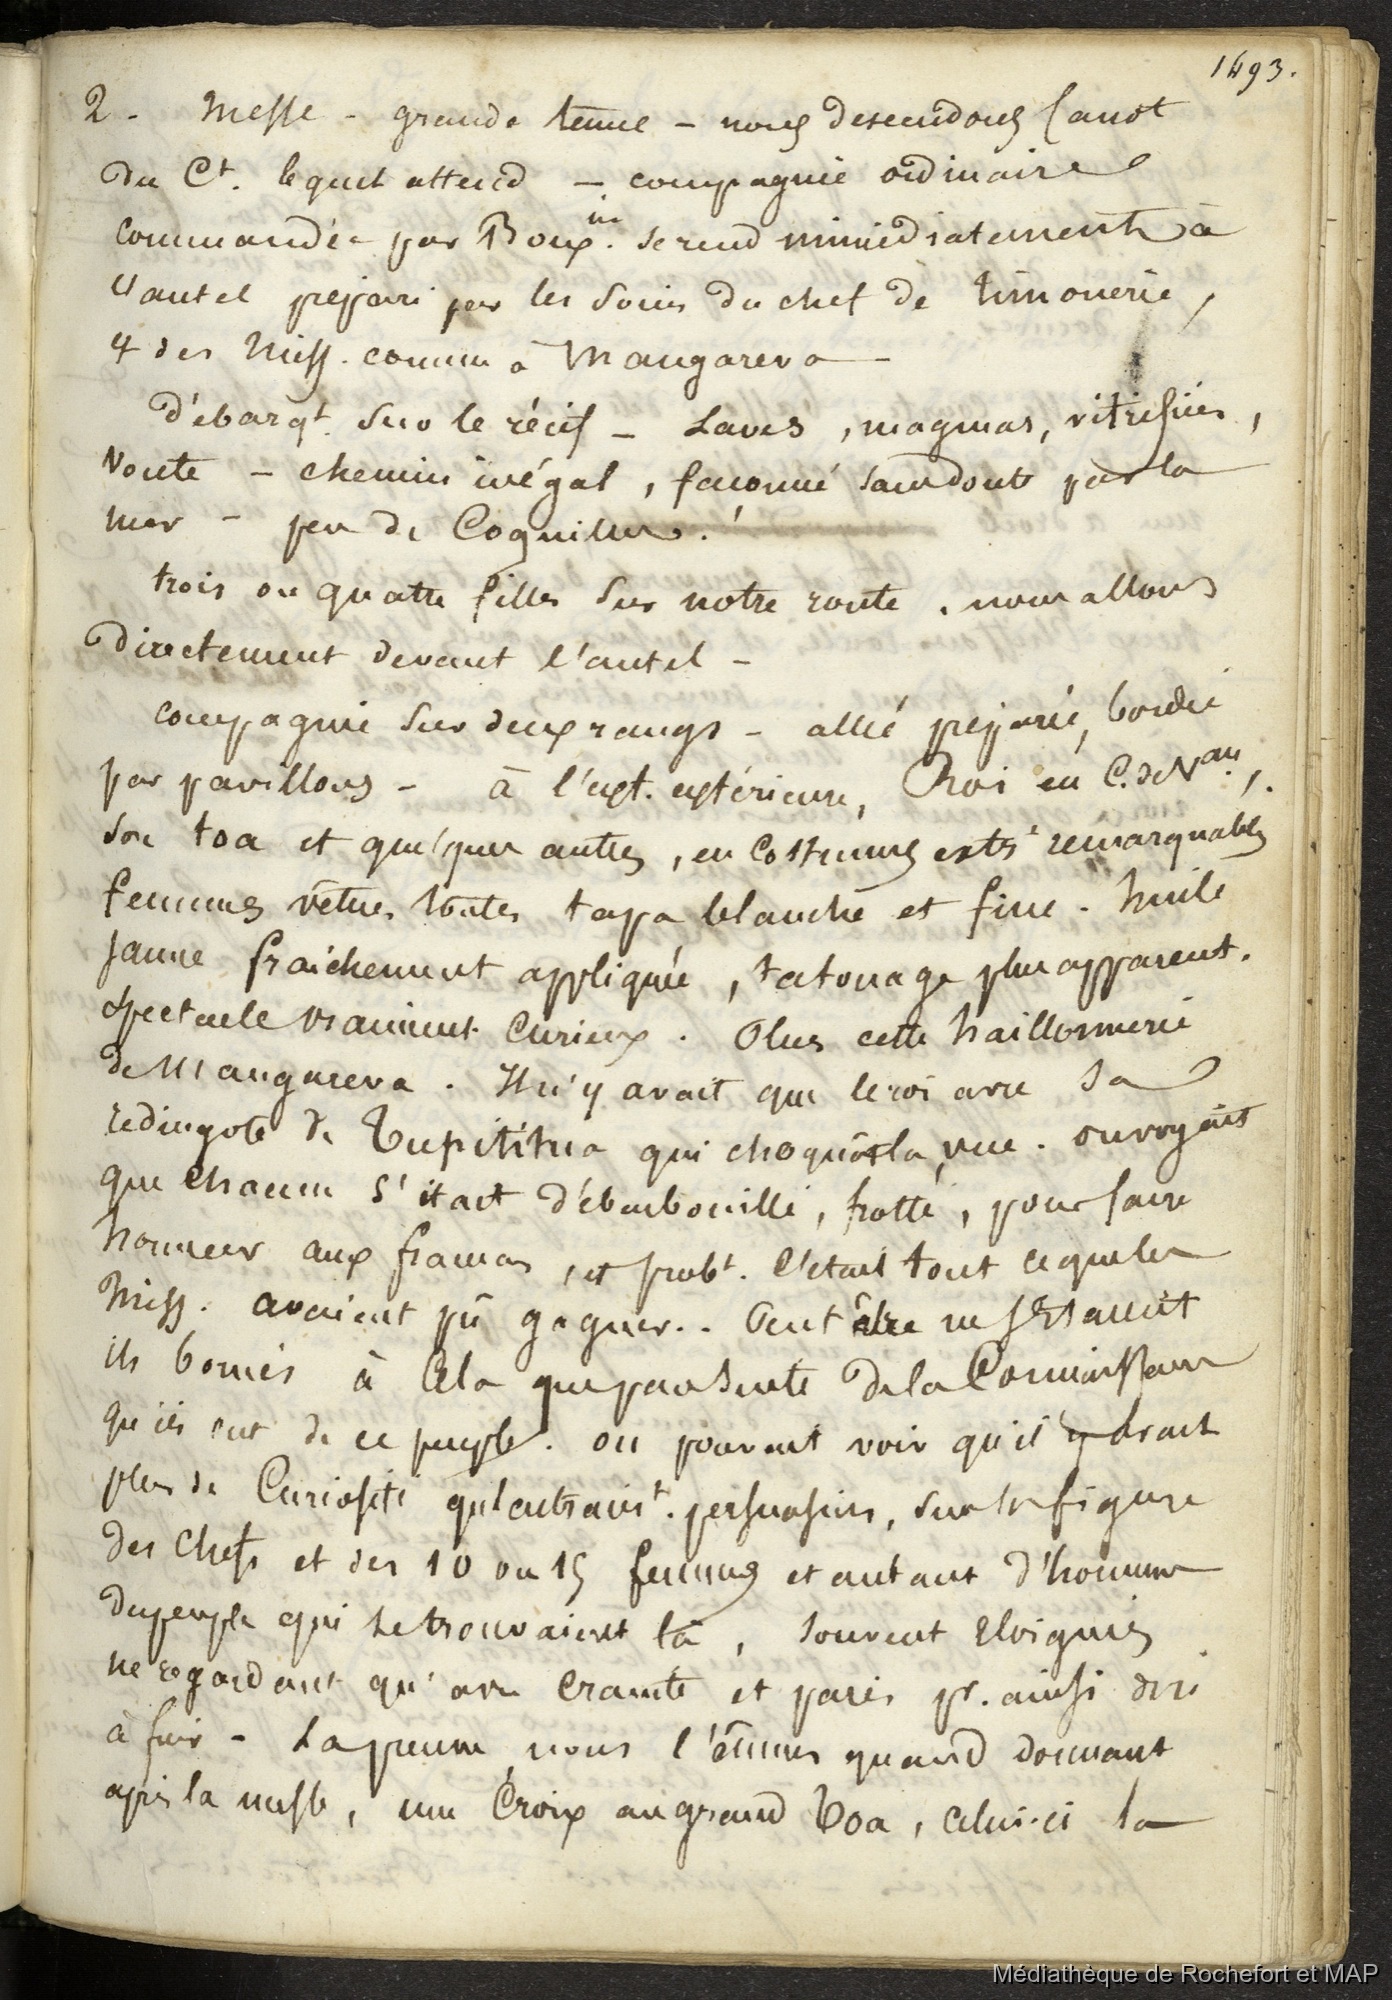 1493.
2 - Messe - grande tenue - nous descendons Canot
du Ct. lequel attend - compagnie ordinaire
commandée par Roux. in se rend immédiatement à
l'autel préparé par les soins du chef de timonerie,
4 des Miss. comme à Mangareva -
débarqt. sur le récif - Laves, magmas, vitrifiées,
voute - chemin inégal, faconné sans doute par la
mer - peu de Coquilles !
trois ou quatre filles sur notre route. nous allons
directement devant l'autel -
compagnie sur deux rangs - allée préparée, bordée
par pavillons - à l'ext. extérieure, Roi en C. de Vau.,
son toa et quelques autres, en costumes exts remarquables
femmes vêtues toutes tapa blanche et fine. huile
jaune fraichement appliquée, tatouage plus apparent.
spectacle vraiment curieux. Plus cette haillonnerie
de Mangareva. Il n'y avait que le roi avec sa
redingote de Tupititua qui choquât la vue. on voyait
que chacun s'était débarbouillé, frotté, pour faire
honneur aux francas, et probt. c'était tout ce que les
Miss. avaient pû gagner.. Peut être ne s'étaient
ils bornés à cela que par suite de la Connaissance
qu'ils ont de ce peuple. on pouvait voir qu'il y avait
plus de Curiosité qu'entraint. persuasion, sur la figure
des chefs et des 10 ou 15 femmes et autant d'hommes
du peuple qui se trouvaient là, souvent eloignés
ne regardant qu'avec crainte et parés pr. ainsi dire
à fuir - La preuve nous l'eûmes quand donnant
après la messe, une Croix au grand Toa, celui-ci la
Médiathèque de Rochefort et MAP